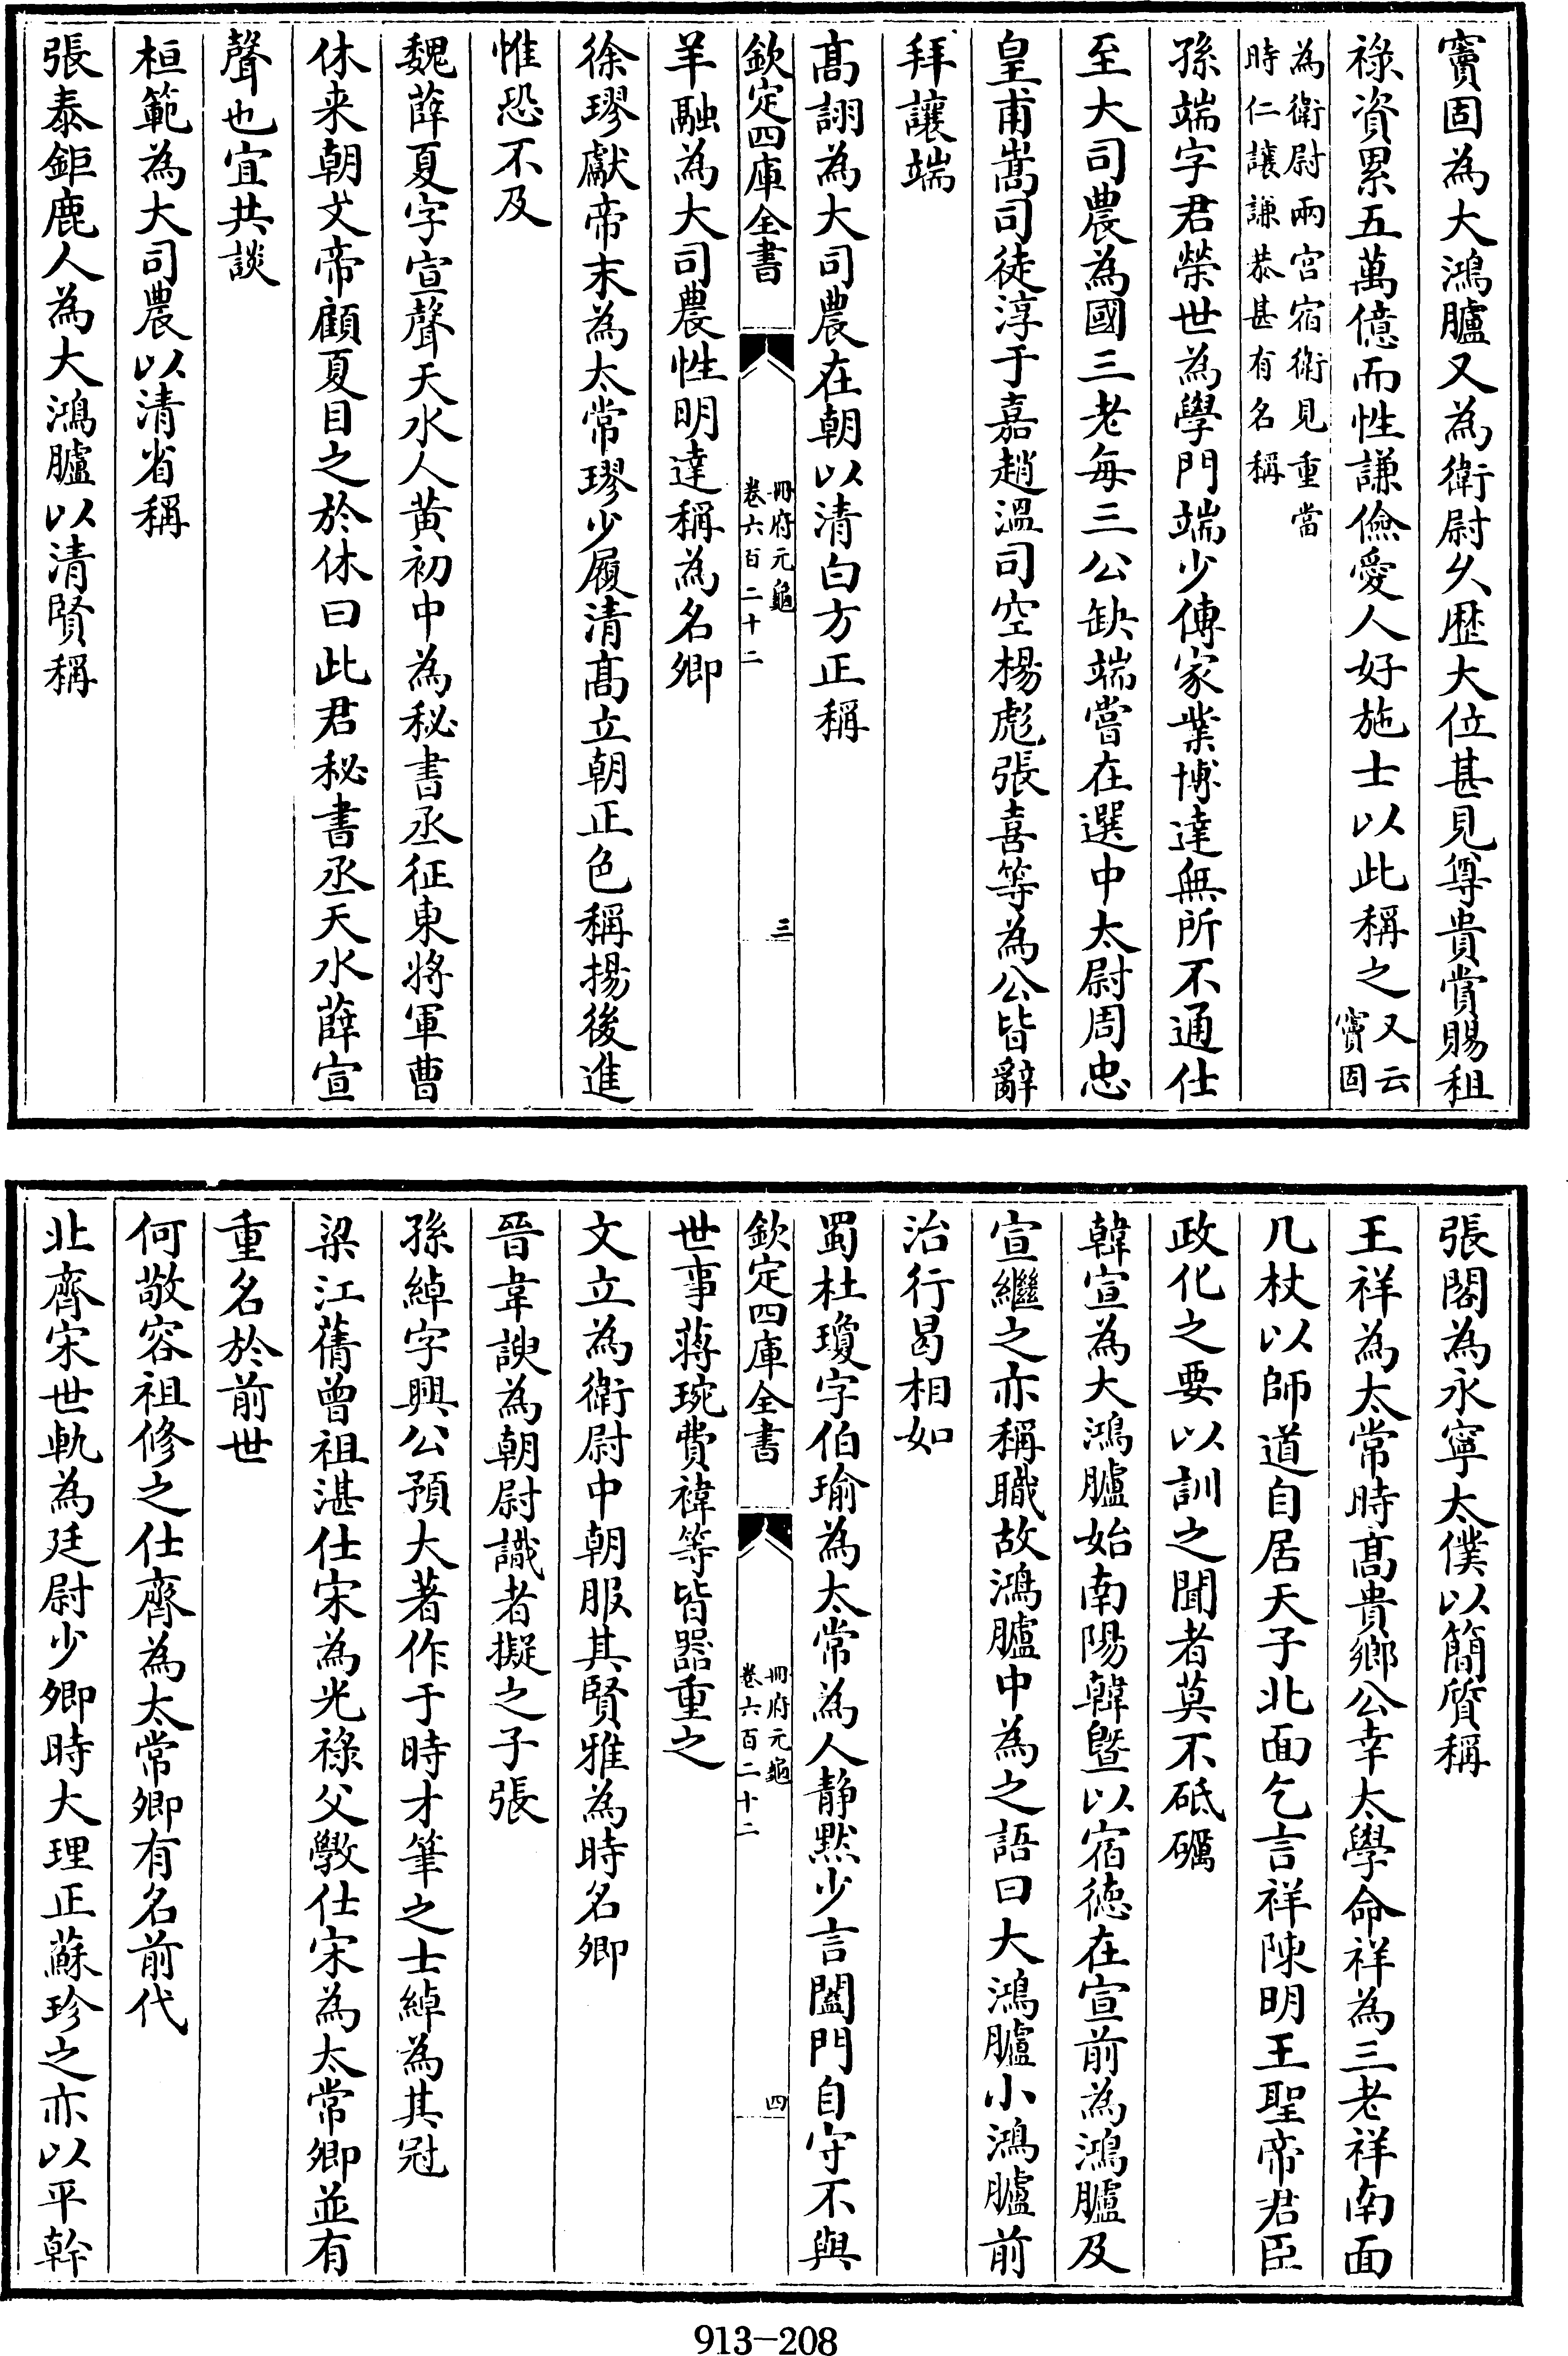 竇固為大鴻臚又為衛尉久歴大位甚見尊貴賞賜租
祿資累五萬億而性謙儉愛人好施士以此稱之又云竇固
為衛尉兩宫宿衛見重當
時仁讓謙恭甚有名稱
孫端字君榮世為學門端少傳家業博達無所不通仕
至大司農為國三老每三公缺端嘗在選中太尉周忠
皇甫嵩司徒淳于嘉趙溫司空楊彪張喜等為公皆辭
拜讓端
髙詡為大司農在朝以清白方正稱
欽定四庫全書
冊府元龜
卷六百二十二
三
羊融為大司農性明達稱為名卿
徐璆獻帝末為太常璆少履清髙立朝正色稱揚後進
惟恐不及
魏薛夏字宣聲天水人黄初中為秘書丞征東將軍曹
休来朝文帝顧夏目之於休曰此君秘書丞天水薛宣
聲也宜共談
桓範為大司農以清省稱
張泰鉅鹿人為大鴻臚以清賢稱
張閣為永寧太僕以簡質稱
王祥為太常時髙貴鄉公幸太學命祥為三老祥南面
几杖以師道自居天子北面乞言祥陳明王聖帝君臣
政化之要以訓之聞者莫不砥礪
韓宣為大鴻臚始南陽韓暨以宿徳在宣前為鴻臚及
宣繼之亦稱職故鴻臚中為之語曰大鴻臚小鴻臚前
治行曷相如
蜀杜瓊字伯瑜為太常為人静黙少言闔門自守不與
欽定四庫全書
冊府元龜
卷六百二十二
四
世事蔣琬費禕等皆器重之
文立為衛尉中朝服其賢雅為時名卿
晉韋謏為朝尉識者擬之子張
孫綽字興公預大著作于時才筆之士綽為其冠
梁江蒨曾祖湛仕宋為光祿父斆仕宋為太常卿並有
重名於前世
何敬容祖修之仕齊為太常卿有名前代
北齊宋世軌為廷尉少卿時大理正蘇珍之亦以平幹
913-208